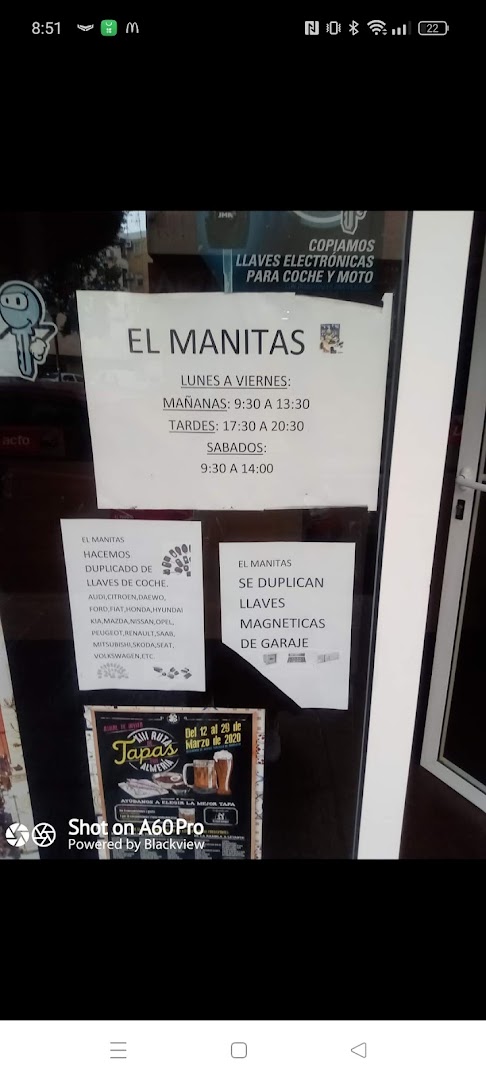 8:51
22
JMA
COPIAMOS
LLAVES ELECTRÓNICAS
PARA COCHE Y MOTO
EL MANITAS
LUNES A VIERNES:
MAÑANAS: 9:30 A 13:30
TARDES: 17:30 A 20:30
SABADOS:
9:30 A 14:00
EL MANITAS
HACEMOS
DUPLICADO DE
LLAVES DE COCHE.
AUDI,CITROEN,DAEWO,
FORD,FIAT,HONDA,HYUNDAI
KIA,MAZDA,NISSAN,OPEL,
PEUGEOT,RENAULT,SAAB,
MITSUBISHI,SKODA,SEAT,
VOLKSWAGEN,ETC.
EL MANITAS
SE DUPLICAN
LLAVES
MAGNETICAS
DE GARAJE
XIII RUTA
Tapas
ALMERÍA
Del 12 al 29 de
Marzo de 2020
AYÚDANOS A ELEGIR LA MEJOR TAPA
Shot on A60Pro
Powered by Blackview